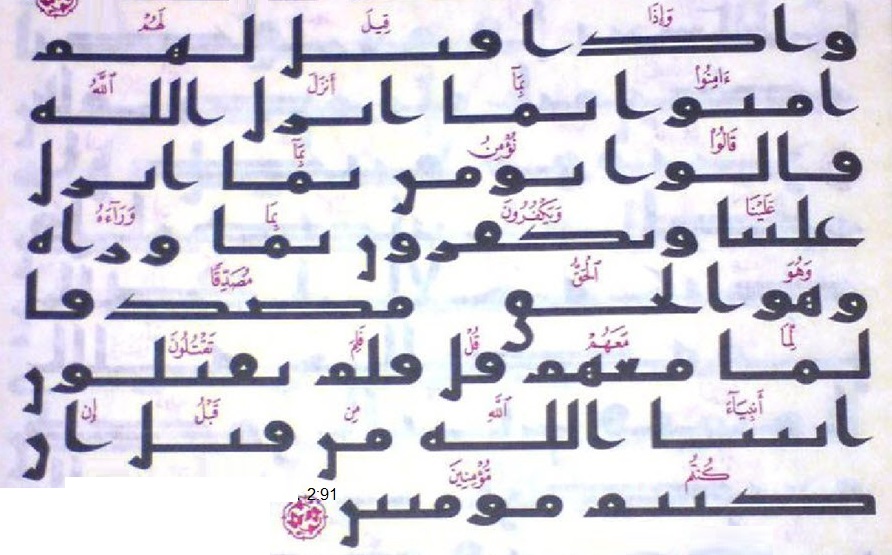 وَإِذَا قِيلَ لَهُمْ
واذا قيل لهم
ءَامِنُوا۟ بِمَآ أَنزَلَ ٱللَّهُ
امنوا بما انزل الله
قَالُوا۟ نُؤْمِنُ بِمَآ
قالوا نومن بما انزل
عَلَيْنَا وَيَكْفُرُونَ بِمَا وَرَآءَهُ
علينا ويكفرون بما وراه
وَهُوَ ٱلْحَقُّ مُصَدِّقًا
وهو الحق مصدقا
لِّمَا مَعَهُمْ قُلْ فَلِمَ تَقْتُلُونَ
لما معهم قل فلم تقتلون
أَنۢبِيَآءَ ٱللَّهِ مِن قَبْلُ إِن
انبيا الله من قبل ان
كُنتُم مُّؤْمِنِينَ
كنتم مومنين
2:91